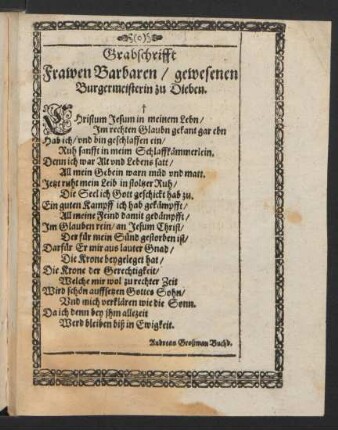 Grabschrifft
Frawen Barbaren / gewesenen
Burgermeisterin zu Dieben.
CHristum Jesum in meinem Lebn /
Im rechten Glaubn gekant gar ebn
Hab ich / vnd bin geschlaffen ein /
Ruh sanfft in meim Schlaffkämmerlein.
Denn ich war Alt vnd Lebens satt /
All mein Gebein warn müd vnd matt.
Jetzt ruht mein Leib in stoltzer Ruh /
Die Seel ich Gott geschickt hab zu.
Ein guten Kampff ich hab gekämpfft /
All meine Feind damit gedämpfft /
Im Glauben rein / an Jesum Christ /
Der für mein Sünd gestorben ist /
Darfür Er mir aus lauter Gnad /
Die Krone beygeleget hat /
Die Krone der Gerechtigkeit /
Welche mir wol zu rechter Zeit
Wird schön auffsetzen Gottes Sohn /
Vnd mich verklären wie die Sonn.
Da ich denn bey ihm allezeit
Werd bleiben biß in Ewigkeit.
Andreas Großman Buchd.